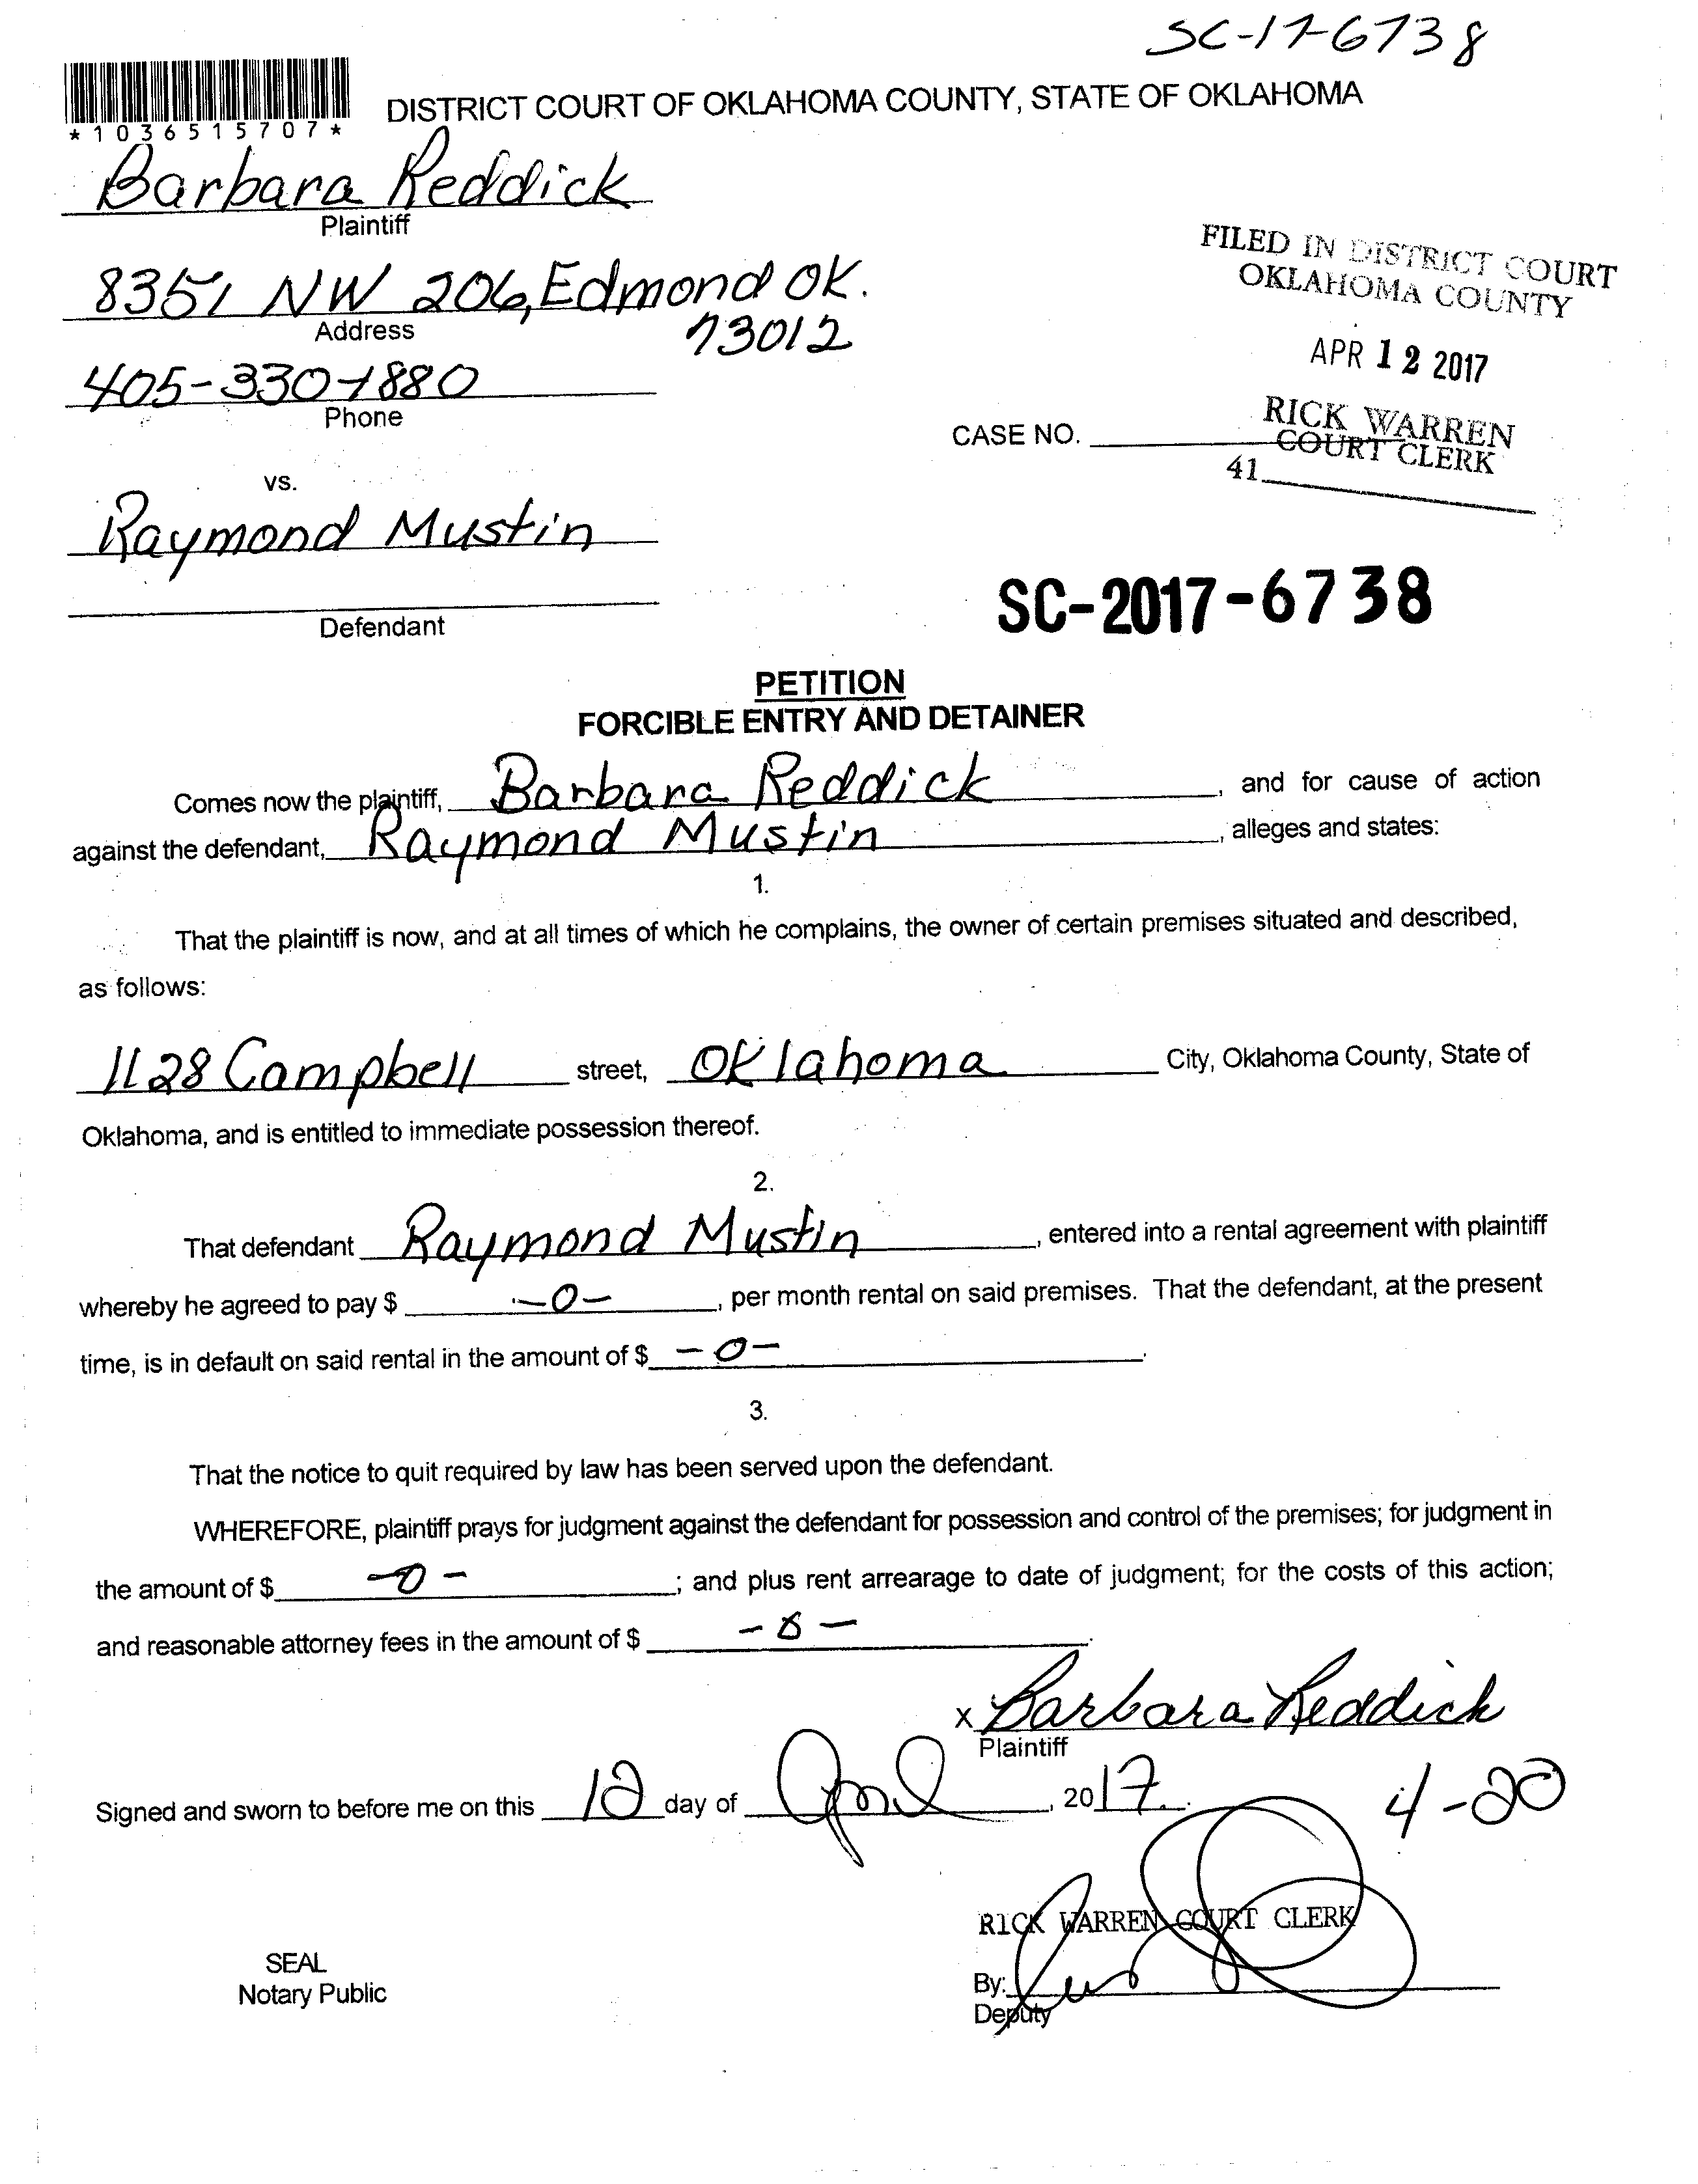 SC-17-6738
*1036515707*
DISTRICT COURT OF OKLAHOMA COUNTY, STATE OF OKLAHOMA
Barbara Reddick
Plaintiff
8351 NW 206, Edmond OK.
73012
Address
405-330-1880
Phone
FILED IN DISTRICT COURT
OKLAHOMA COUNTY
APR 12 2017
RICK WARREN
COURT CLERK
41
CASE NO.
vs.
Raymond Mustin
Defendant
SC-2017-6738
PETITION
FORCIBLE ENTRY AND DETAINER
Comes now the plaintiff, Barbara Reddick, and for cause of action
against the defendant, Raymond Mustin, alleges and states:
1.
That the plaintiff is now, and at all times of which he complains, the owner of certain premises situated and described,
as follows:
1128 Campbell street, Oklahoma City, Oklahoma County, State of
Oklahoma, and is entitled to immediate possession thereof.
2.
That defendant Raymond Mustin, entered into a rental agreement with plaintiff
whereby he agreed to pay $ -0-, per month rental on said premises. That the defendant, at the present
time, is in default on said rental in the amount of $ -0-.
3.
That the notice to quit required by law has been served upon the defendant.
WHEREFORE, plaintiff prays for judgment against the defendant for possession and control of the premises; for judgment in
the amount of $ -0-; and plus rent arrearage to date of judgment; for the costs of this action;
and reasonable attorney fees in the amount of $ -0-.
x Barbara Reddick
Plaintiff
Signed and sworn to before me on this 12 day of April, 2017.
4-20
RICK WARREN COURT CLERK
SEAL
Notary Public
By:
Deputy